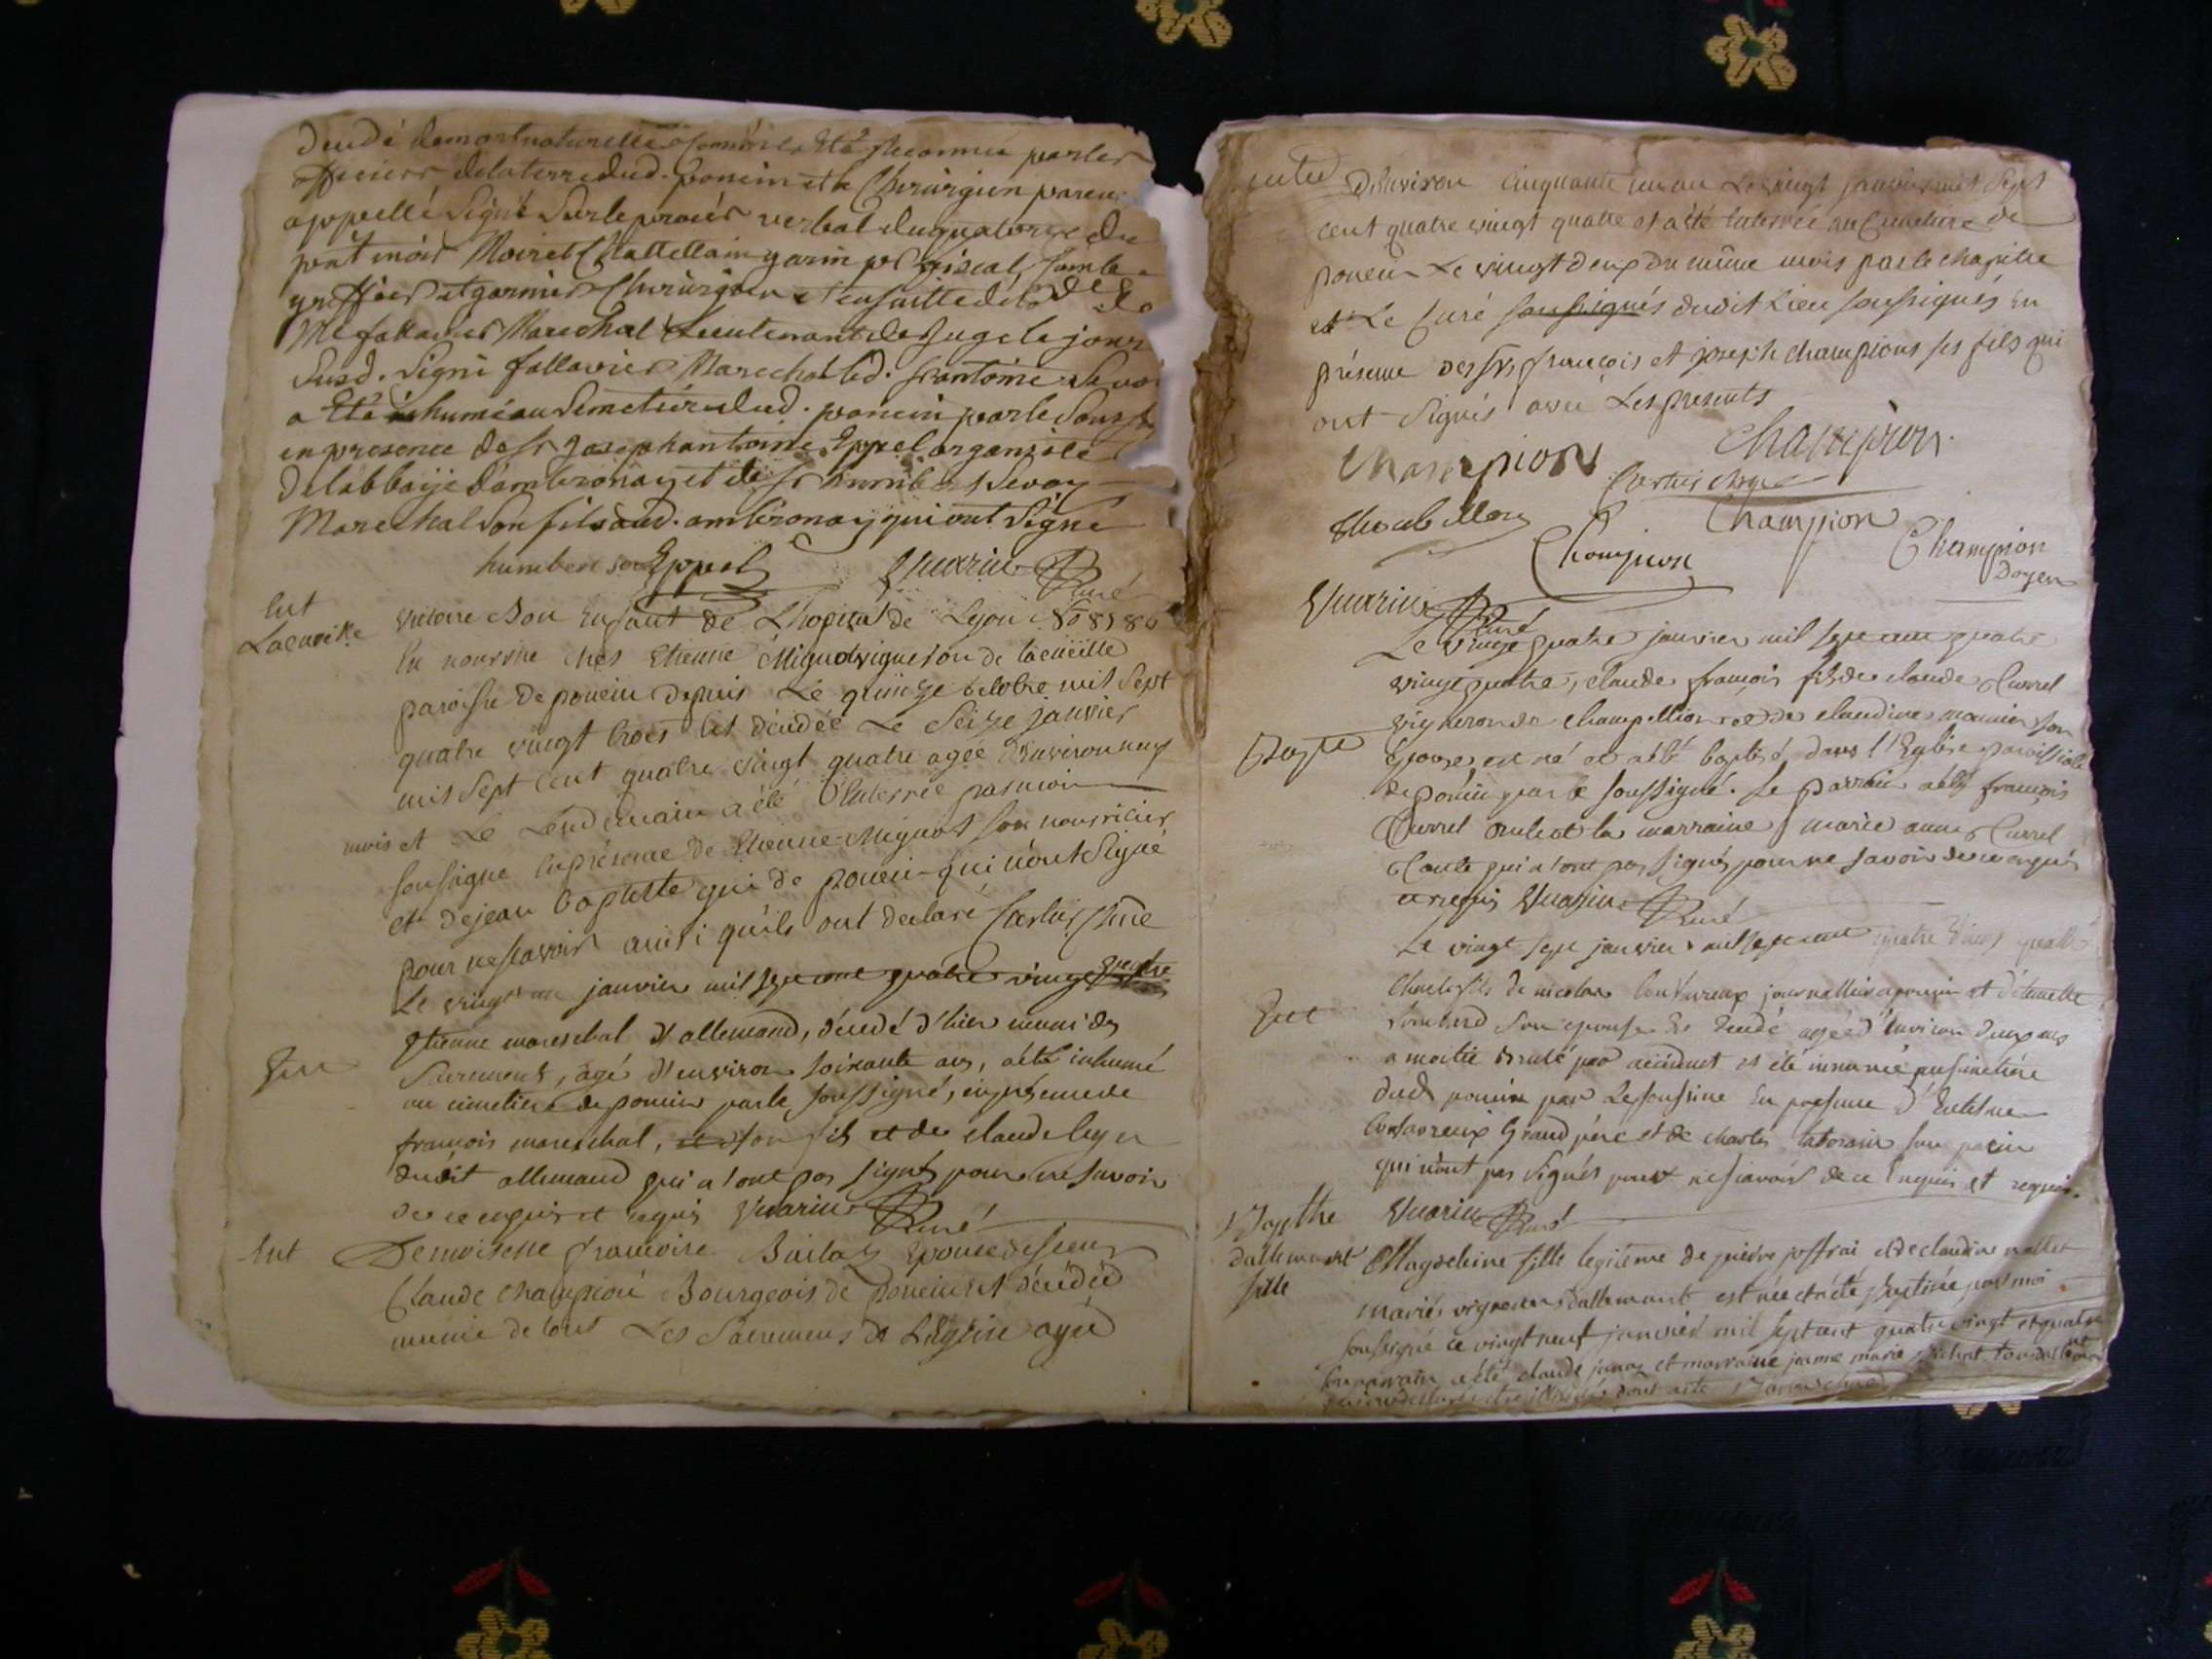 décédé de mort naturelle comme la Eté Reconnu par les
officiers de la terre dud. poncin et le Chirurgien par eux
appellé Signé Sur le procès verbal du quatorze du
pnt mois Moiret Chattellain garin pr fiscal,
greffier et garnier Chirurgien et ensuitte de
Me fallavier Marechal Lieutenant de Juge le jour
Susd. Signé fallavier Marechal led. sr antoine
a Eté inhumé au Semetière dud. poncin par le Souss
en presence de sr joseph antoine Eppel organiste
de labbaije dambronay et de sr humbert Sevoz
Marechal Son fils aud. ambronay qui ont Signé
humbert Eppel Vuarin Curé
Ent
Lacueille
victoire Bon Enfant de L'hopital de Lyon No 8186
En nourrice chés Etienne Mignot vigneron de lacueille
paroisse de poncin depuis Le quinze octobre mil Sept
quatre vingt trois Est décédée Le Seize janvier
mil Sept Cent quatre vingt quatre agée d'environ neuf
mois et Le Lendemain a été Enterrée par moi
soussigné en présence de Etienne Mignot son nourricier
et de jean baptiste qui de poncin qui n'ont Signé
pour ne scavoir ainsi qu'ils ont declaré Cartier
Le vingt un janvier mil sept cent quatre vingt quatre
Ent
Etienne mareschal d'allemand, décédé d'hier muni des
Sacremens, agé d'environ soixante ans, a été inhumé
au cimetiere de poncin par le soussigné, en présence de
françois mareschal, et son fils et de claude leger
dudit allemand qui n'ont pas signés pour ne savoir
de ce enquis et requis Vuarin Curé
Ent
Demoiselle françoise Bailas Epouse de sieur
Claude champion Bourgeois de poncin est décédée
munie de tous Les Sacremens de L'Eglise agée
D'environ cinquante un an Le vingt janvier mil Sept
cent quatre vingt quatre et a été Enterrée au Cimetiere de
poncin Le vingt deux du même mois par le chapitre
et Le Curé soussignés dudit Lieu soussignés En
présence des srs françois et joseph champions ses fils qui
ont Signés avec Les presents
Champion Champion
Cartier
Champion
Champion Champion
Doyen
Vuarin Curé
Le vingt quatre janvier mil sept cent quatre
vingt quatre, claude françois fils de claude Currel
vigneron de champeillion et de claudine mounier son
Bapte
Epouse, est né et a été baptisé dans l'Eglise paroissiale
de poncin par le soussigné. Le parrain a été françois
Currel oncle et la marraine marie anne Currel
tante qui n'ont pas signés pour ne savoir de ce enquis
et requis Vuarin Curé
Le vingt sept janvier mil sept cent quatre vingt quatre
Ent
Charle fils de nicolas journallier a poncin et d'etiennette
son epouse Est décédé agé d'environ deux ans
a moitié brulé par accident et été innumé au simetiére
dud poncin par Le soussiné En presence d'
Grand père et de charles son parin
qui n'ont pas signés pour ne sçavoir de ce Enquis et requis.
Bapthe
dallement
fille
Vuarin Curé
Magdeleine fille legitime de pierre joffrai et de claudine mallet
mariés vignerons dallemant est née et a été Baptisée par moi
soussigné ce vingt neuf janvier mil sept cent quatre vingt et quatre
Son parrain a été claude janez et marraine jeanne marie